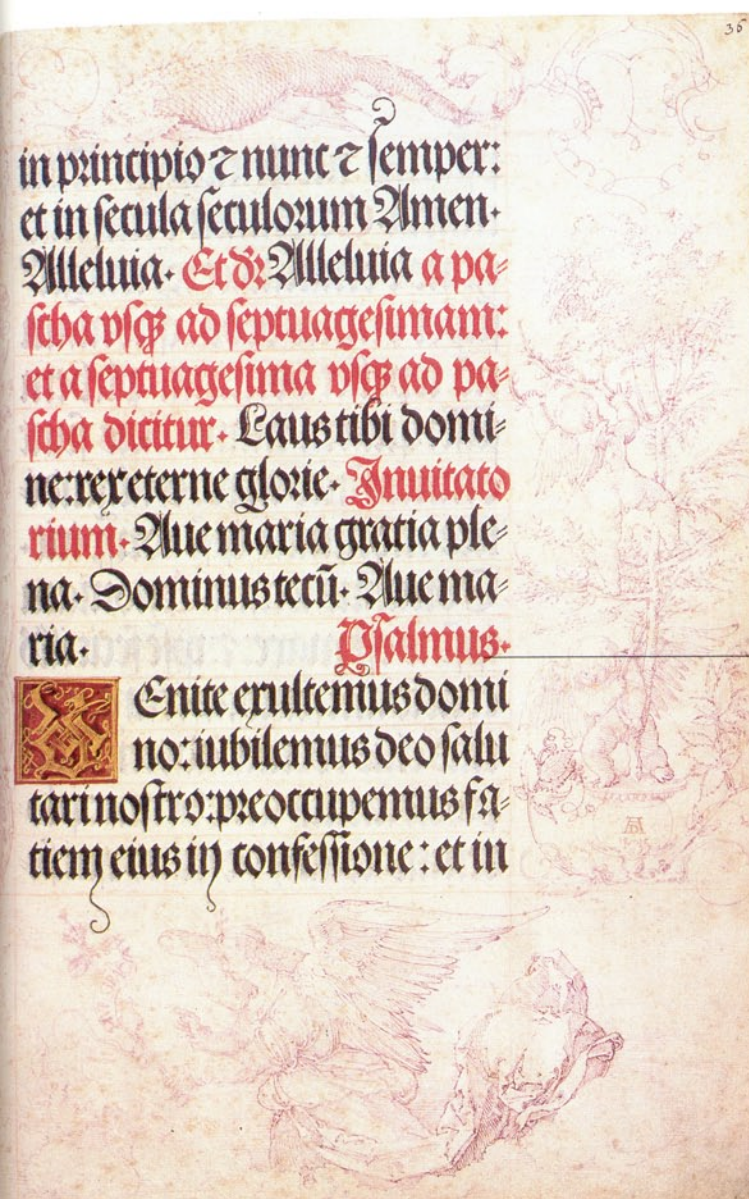 36
in principio ⁊ nunc ⁊ semper:
et in secula seculorum Amen.
Alleluia. Et dr̄ Alleluia a pa⸗
scha vsqꝫ ad septuagesimam:
et a septuagesima vsqꝫ ad pa⸗
scha dicitur. Laus tibi domi⸗
ne: rex eterne glorie. Inuitato
rium. Aue maria gratia ple⸗
na. Dominus tecū. Aue ma⸗
ria. Psalmus.
VEnite exultemus domi
no: iubilemus deo salu
tari nostro: preoccupemus fa⸗
ciem eius in confessione: et in
AD